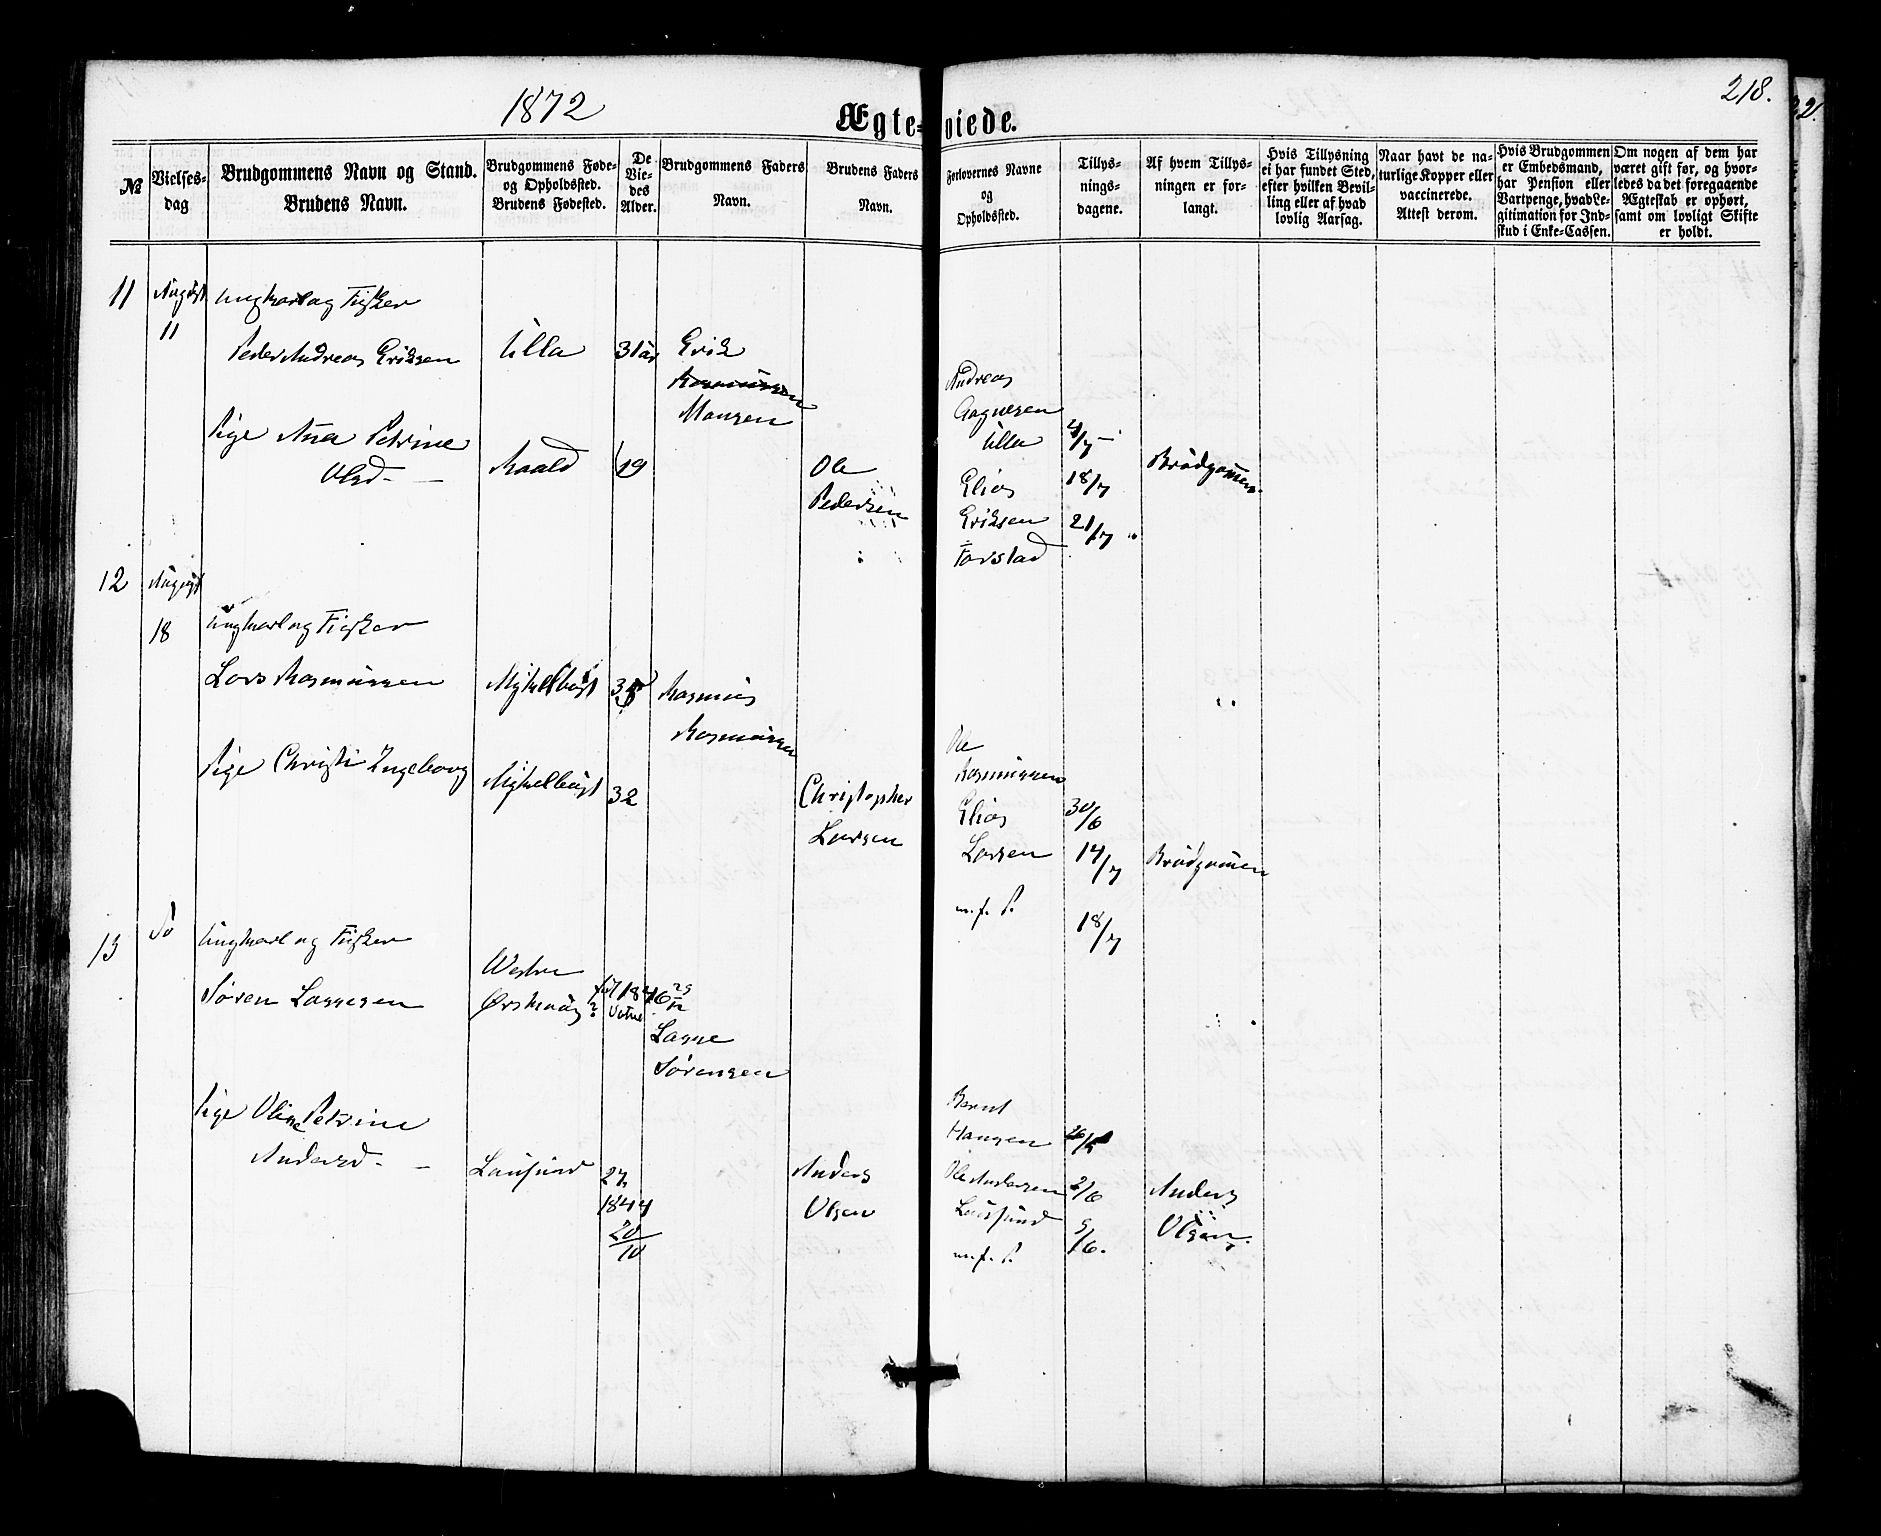 1872
218.
Ægte-viede.
№
Vielses-
dag
Brudgommens Navn og Stand.
Brudens Navn.
Brudgommens Føde-
og Opholdssted.
Brudens Fødested.
De
Vie-
des
Alder.
Brudgommens Faders
Navn.
Brudens Faders
Navn.
Forlovernes Navne
og
Opholdssted.
Tillys-
nings-
dagene.
Af hvem Tillys-
ningen er for-
langt.
Hvis Tillysning
ei har fundet Sted,
efter hvilken Bevil-
ling eller af hvad
lovlig Aarsag.
Naar havt de na-
turlige Kopper eller
vaccinerede.
Attest derom.
Hvis Brudgommen
er Embedsmand,
har Pension eller
Vartpenge, hvad Le-
gitimation for Ind-
skud i Enke-Cassen.
Om nogen af dem har
været gift før, og hvor-
ledes da det foregaaende
Ægteskab er ophørt,
samt om lovligt Skifte
er holdt.
11
August
11
Ungkarl og Fisker
Peder Andreas Eriksen
Ulla
31 år
Erik
Rasmussen
Monsen
Pige Ana Petrine
Olsd-
Raald
19
Ole
Pedersen
Andreas
Aagnesen
Ulla
Elias
Eriksen
Farstad
4/7
18/7
21/7
Brudgommen
12
August
18
Ungkarl og Fisker
Lars Rasmussen
Myklebust
Rasmus
Rasmussen
Pige Christi Ingeborg
Myklebust
32
Christopher
Larsen
Ole
Rasmussen
Elias
Larsen
m. f. P.
30/6
14/7
18/7
Brudgommen
13
Do
Ungkarl og Fisker
Søren Lassesen
Westre
Lasse
Sørensen
Pige Oline Petrine
Andersd-
Lausund
27
1844
20/10
Anders
Olsen
Bernt
Hansen
Ole Andersen
Lausund
m. f. P.
2/6
9/6.
Anders
Olsen